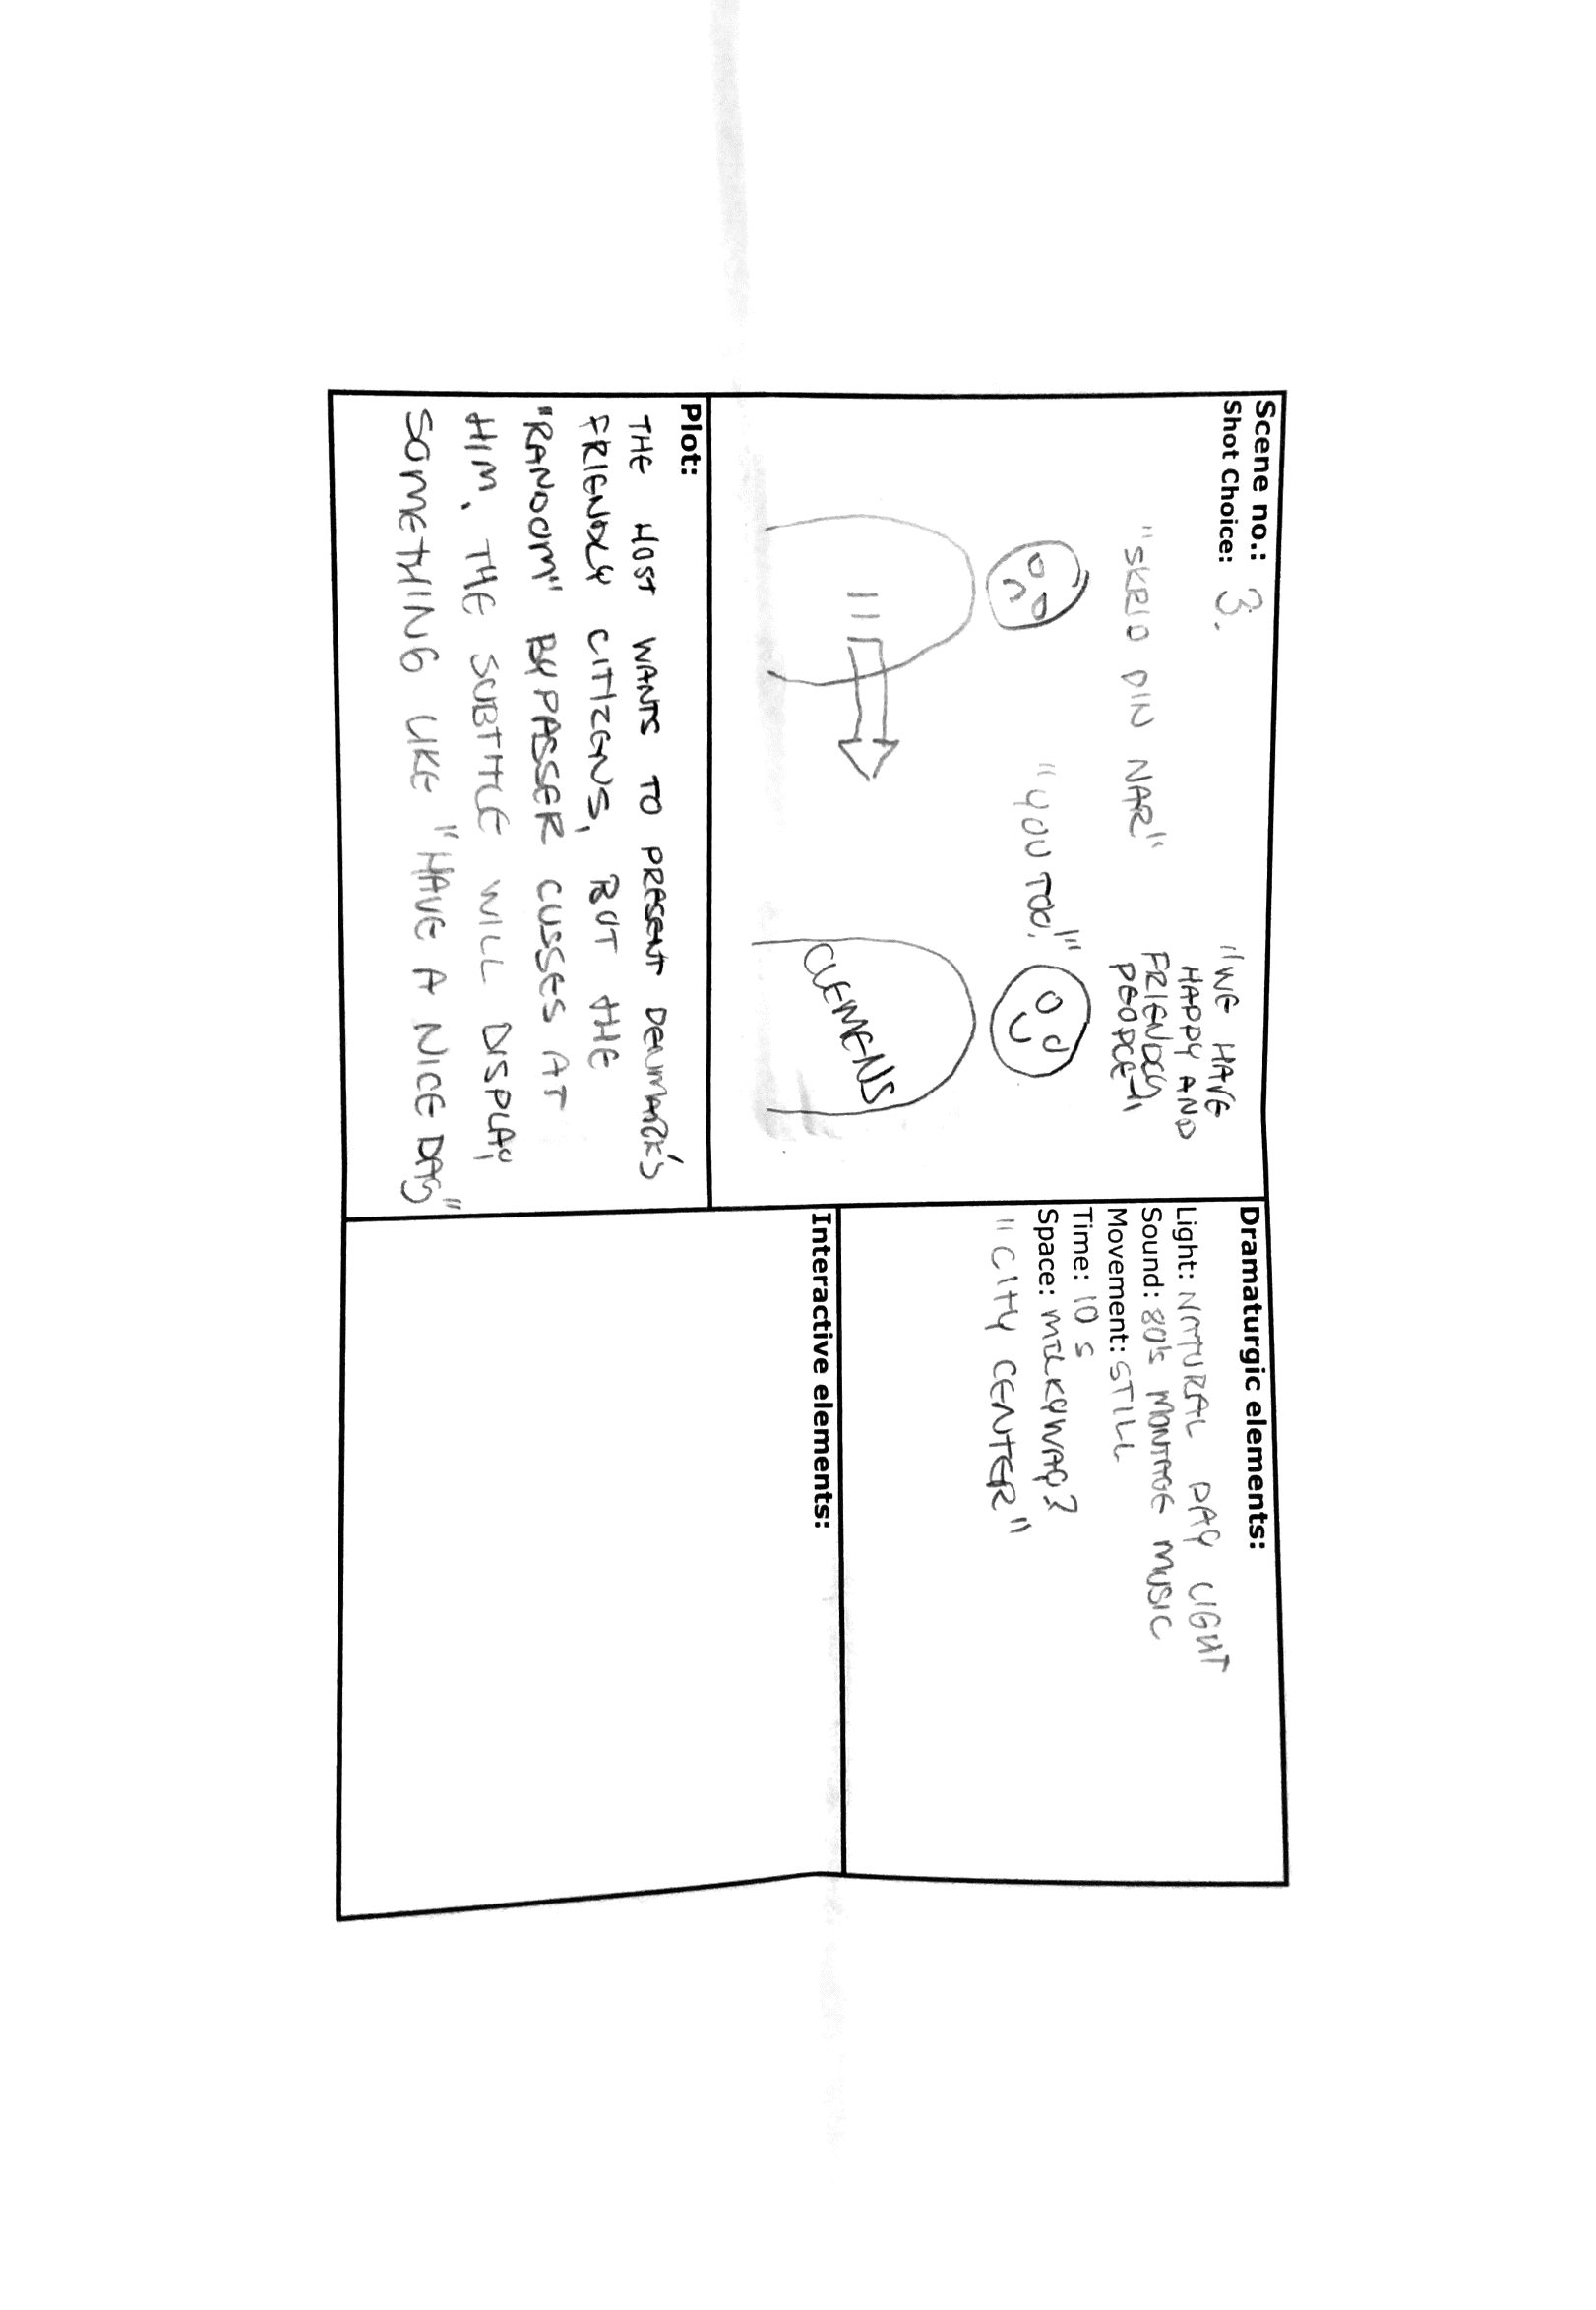 Scene no.:
Shot Choice: 3.
"WE HAVE
HAPPY AND
FRIENDLY
PEOPLE"
"SKRID DIN NAR"
"YOU TOO!"
CLEMENS
Plot:
THE HOST WANTS TO PRESENT DENMARK'S
FRIENDLY CITIZENS, BUT THE
"RANDOM" BYPASSER CUSSES AT
HIM. THE SUBTITLE WILL DISPLAY
SOMETHING LIKE "HAVE A NICE DAY"
Dramaturgic elements:
Light: NATURAL DAY LIGHT
Sound: 80's MONTAGE MUSIC
Movement: STILL
Time: 10 S
Space: MILKYWAY?
"CITY CENTER"
Interactive elements: